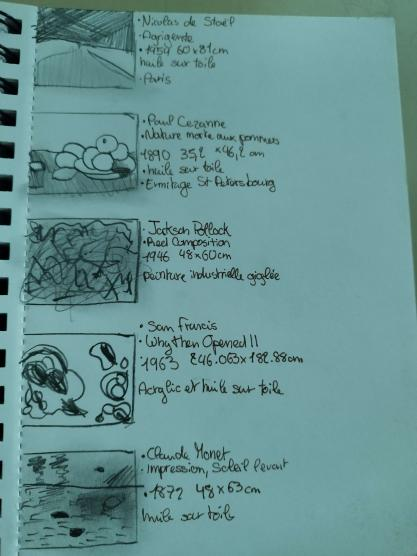 • Nicolas de Staël
• Agrigente
• 1954 60x81cm
huile sur toile
• Paris
• Paul Cezanne
• Nature morte aux pommes
1890 35,2 x46,2 cm
• huile sur toile
• Ermitage St Petersbourg
• Jackson Pollock
• Reel Composition
• 1946 48x60cm
peinture industrielle giclée
• Sam Francis
• Why then Opened II
• 1963 246.063x182.88cm
Acrylic et huile sur toile
• Claude Monet
• Impression, Soleil levant
• 1872 48x63cm
huile sur toile